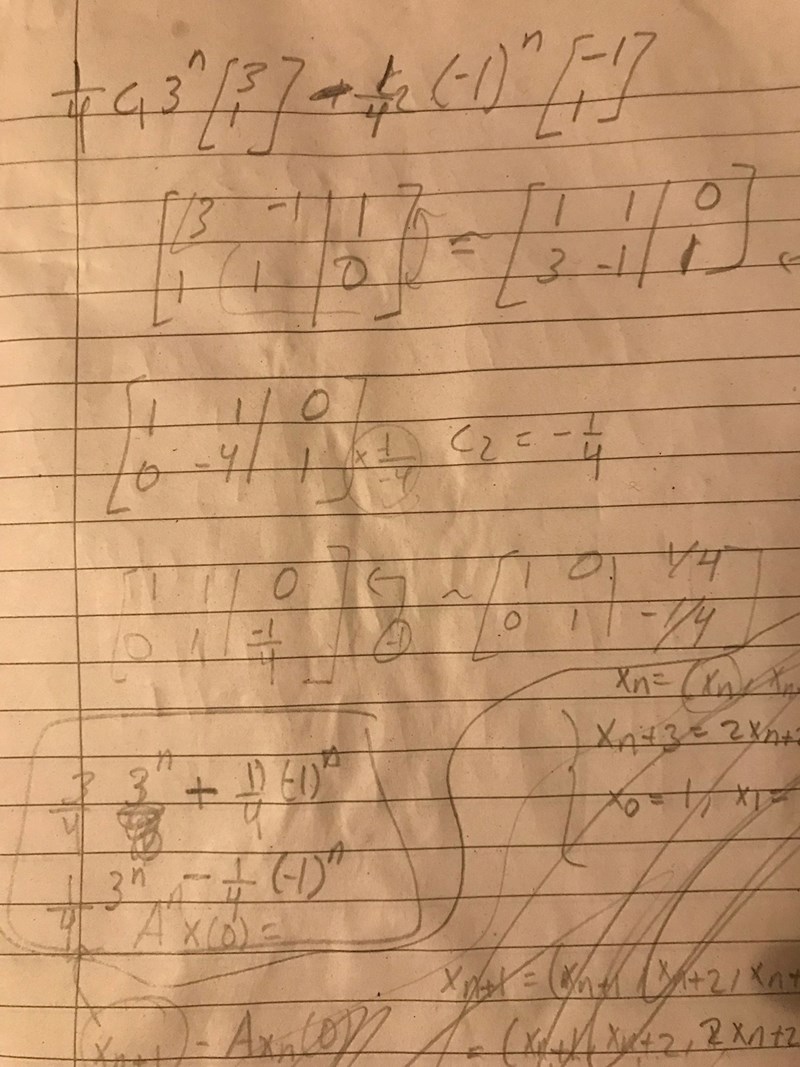 1/4 c₁ 3ⁿ [3 1] + 1/4 (-1)ⁿ [-1 1]
[3 -1 | 1
1 1 | 0] = [1 1 | 0
3 -1 | 1] ←
[1 1 | 0
0 -4 | 1] × 1/-4 c₂ = -1/4
[1 1 | 0
0 1 | -1/4] -1 ~ [1 0 | 1/4
0 1 | -1/4]
xₙ = (xₙ, xₙ
xₙ+3 = 2xₙ+2
x₀ = 1, x₁ =
3/4 3ⁿ + 1/4 (-1)ⁿ
1/4 3ⁿ - 1/4 (-1)ⁿ
Aⁿ x(0) =
xₙ+1 = (xₙ+1, xₙ+2, xₙ+
xₙ+1 - Axₙ(0)
= (xₙ+1, xₙ+2, 2xₙ+2